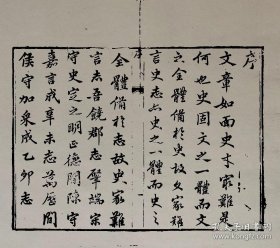 序
文章如面史才
何也史固文之一體而文
之全體備於史故文家難
言史志亦史之一體而史之
序
全體備於志故史家難
言志吾饒郡志肇端宗
守史定之明正德間陳守
嘉言成辛未志萬曆間
侯守加采成乙卯志